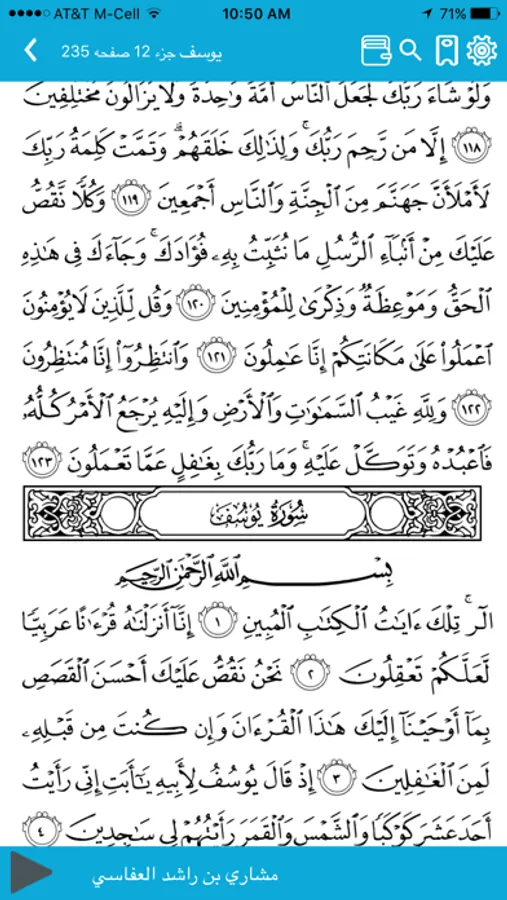 AT&T M-Cell 10:50 AM 71%
يوسف جزء 12 صفحه 235
وَلَوْ شَآءَ رَبُّكَ لَجَعَلَ ٱلنَّاسَ أُمَّةً وَٰحِدَةً وَلَا يَزَالُونَ مُخْتَلِفِينَ
١١٨ إِلَّا مَن رَّحِمَ رَبُّكَ ۚ وَلِذَٰلِكَ خَلَقَهُمْ ۗ وَتَمَّتْ كَلِمَةُ رَبِّكَ
لَأَمْلَأَنَّ جَهَنَّمَ مِنَ ٱلْجِنَّةِ وَٱلنَّاسِ أَجْمَعِينَ ١١٩ وَكُلًّا نَّقُصُّ
عَلَيْكَ مِنْ أَنۢبَآءِ ٱلرُّسُلِ مَا نُثَبِّتُ بِهِۦ فُؤَادَكَ ۚ وَجَآءَكَ فِى هَٰذِهِ
ٱلْحَقُّ وَمَوْعِظَةٌ وَذِكْرَىٰ لِلْمُؤْمِنِينَ ١٢٠ وَقُل لِّلَّذِينَ لَا يُؤْمِنُونَ
ٱعْمَلُوا۟ عَلَىٰ مَكَانَتِكُمْ إِنَّا عَٰمِلُونَ ١٢١ وَٱنتَظِرُوٓا۟ إِنَّا مُنتَظِرُونَ
١٢٢ وَلِلَّهِ غَيْبُ ٱلسَّمَٰوَٰتِ وَٱلْأَرْضِ وَإِلَيْهِ يُرْجَعُ ٱلْأَمْرُ كُلُّهُۥ
فَٱعْبُدْهُ وَتَوَكَّلْ عَلَيْهِ ۚ وَمَا رَبُّكَ بِغَٰفِلٍ عَمَّا تَعْمَلُونَ ١٢٣
سُورَةُ يُوسُفَ
بِسْمِ ٱللَّهِ ٱلرَّحْمَٰنِ ٱلرَّحِيمِ
الٓر ۚ تِلْكَ ءَايَٰتُ ٱلْكِتَٰبِ ٱلْمُبِينِ ١ إِنَّآ أَنزَلْنَٰهُ قُرْءَٰنًا عَرَبِيًّا
لَّعَلَّكُمْ تَعْقِلُونَ ٢ نَحْنُ نَقُصُّ عَلَيْكَ أَحْسَنَ ٱلْقَصَصِ
بِمَآ أَوْحَيْنَآ إِلَيْكَ هَٰذَا ٱلْقُرْءَانَ وَإِن كُنتَ مِن قَبْلِهِۦ
لَمِنَ ٱلْغَٰفِلِينَ ٣ إِذْ قَالَ يُوسُفُ لِأَبِيهِ يَٰٓأَبَتِ إِنِّى رَأَيْتُ
أَحَدَ عَشَرَ كَوْكَبًا وَٱلشَّمْسَ وَٱلْقَمَرَ رَأَيْتُهُمْ لِى سَٰجِدِينَ ٤
مشاري بن راشد العفاسي